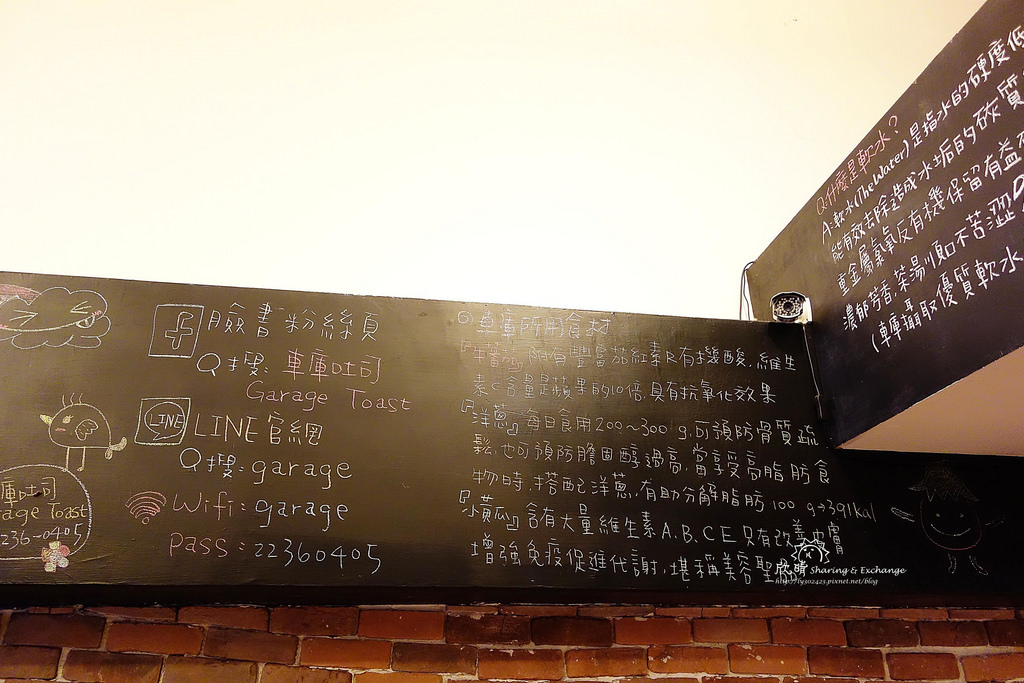 臉書粉絲頁
Q搜:車庫吐司
Garage Toast
LINE
LINE官網
Q搜:garage
Wifi:garage
Pass:22360405
庫吐司
age Toast
236-0405
◎車庫所用食材
『牛蕃茄』附有豐富茄紅素及有機酸,維生
素C含量是蘋果的10倍,具有抗氧化效果
『洋蔥』每日食用200~300g,可預防骨質疏
鬆,也可預防膽固醇過高,當享受高脂肪食
物時,搭配洋蔥,有助分解脂肪100g→391kal
『小黃瓜』含有大量維生素A.B.C.E只有改善皮膚
增強免疫促進代謝,堪稱美容聖
Q:什麼是軟水?
A:軟水(The Water)是指水的硬度低
能有效去除造成水垢的碳質
重金屬氯氣反有機保留有益
濃郁芳香,茶湯順口不苦澀
(車庫攝取優質軟水
欣晴 Sharing & Exchange
http://ly302423.pixnet.net/blog